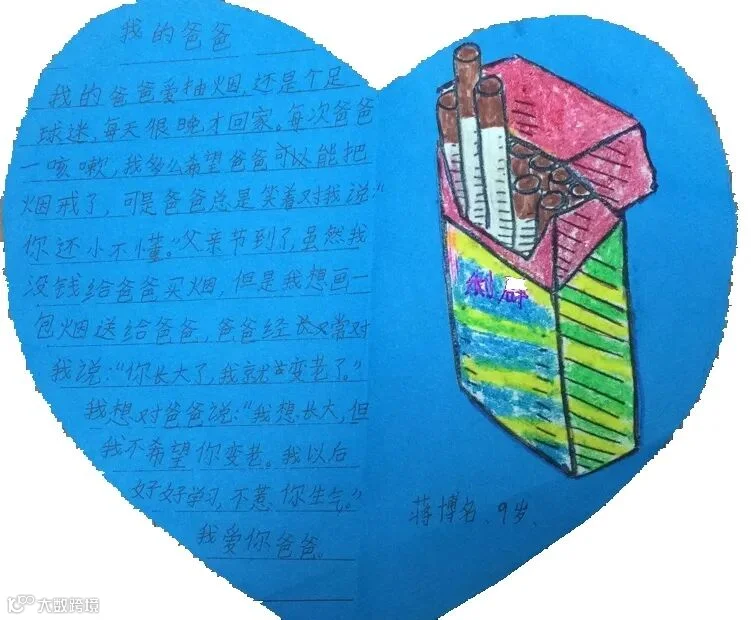 我的爸爸
我的爸爸爱抽烟,还是个足
球迷,每天很晚才回家。每次爸爸
一咳嗽,我多么希望爸爸可以能把
烟戒了,可是爸爸总是笑着对我说"
你还小不懂。"父亲节到了,虽然我
没钱给爸爸买烟,但是我想画一
包烟送给爸爸,爸爸经长常对
我说:"你长大了,我就变老了。"
我想对爸爸说:"我想长大,但
我不希望你变老。我以后
好好学习,不惹你生气。"
我爱你爸爸。
蒋博名、9岁、
大数跨境